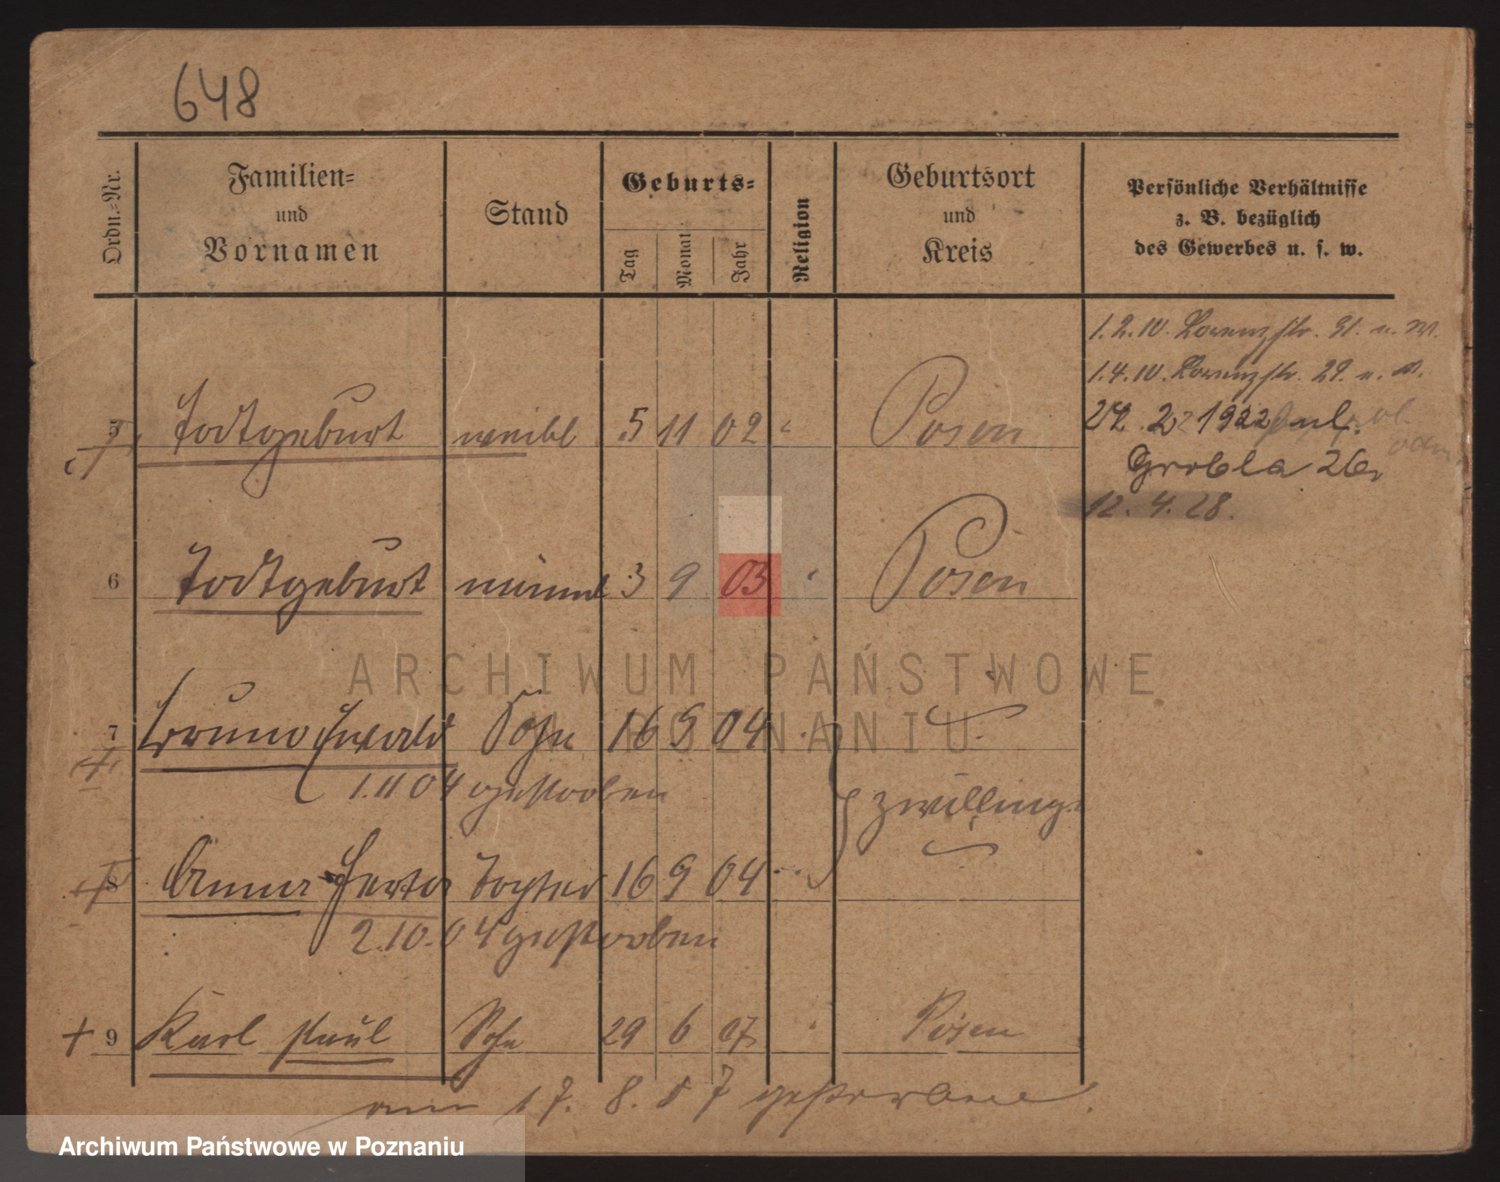 648
Ordn.-Nr.
Familien-
und
Vornamen
Stand
Geburts-
Tag
Monat
Jahr
Religion
Geburtsort
und
Kreis
Persönliche Verhältnisse
z. B. bezüglich
des Gewerbes u. s. w.
1.2.10. Lorenzstr. 31.
1.4.10. Lorenzstr. 29.
5 Todtgeburt weibl 5 11 02 Posen
1922
Grobla 26
12.4.28.
6 Todtgeburt männl 3 9 03 Posen
ARCHIWUM PAŃSTWOWE
W POZNANIU
7 Bruno Ewald Sohn 16 9 04
1.11 04 gestorben
Zwillinge
8 Anna Herta Tochter 16 9 04
2.10.04 gestorben
9 Karl Paul Sohn 29 6 07 Posen
am 17. 8. 07 gestorben.
Archiwum Państwowe w Poznaniu